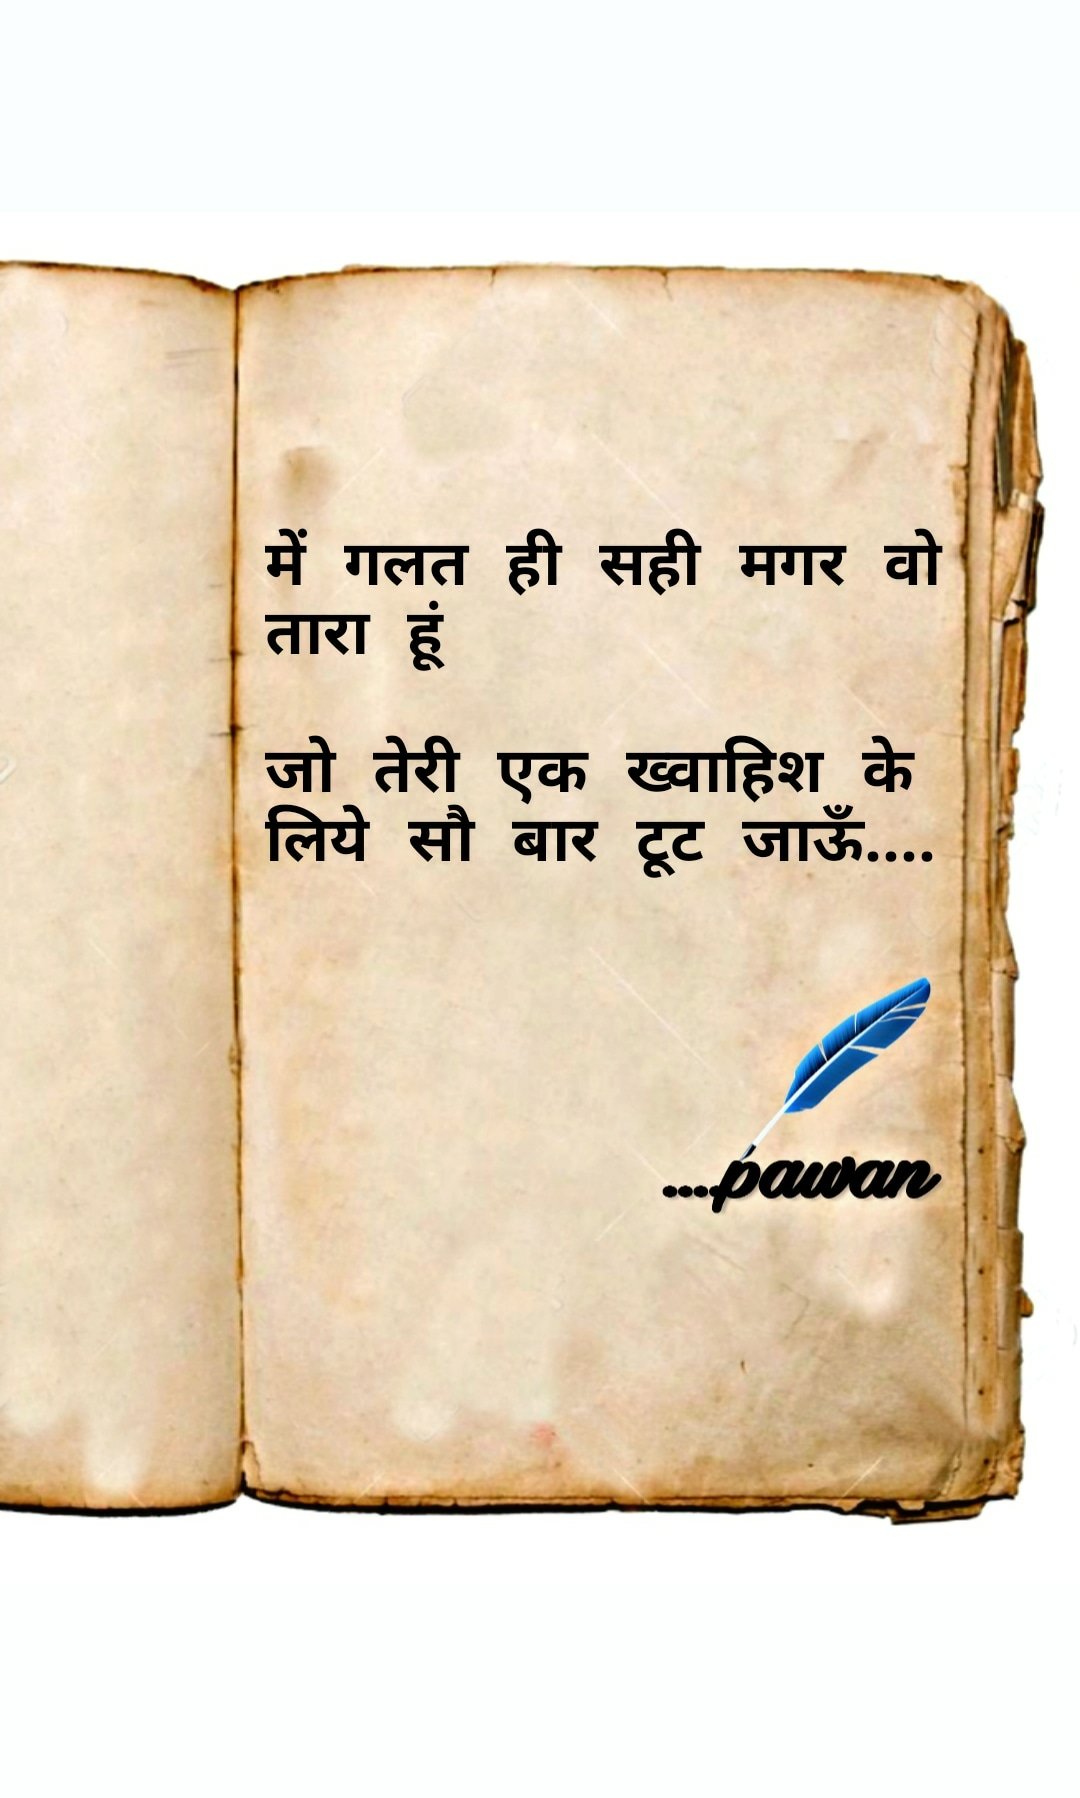 में गलत ही सही मगर वो
तारा हूं
जो तेरी एक ख्वाहिश के
लिये सौ बार टूट जाऊँ....
....pawan